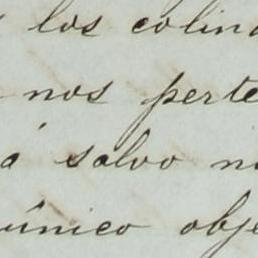 los colin
nos perte
á salvo n
único obje